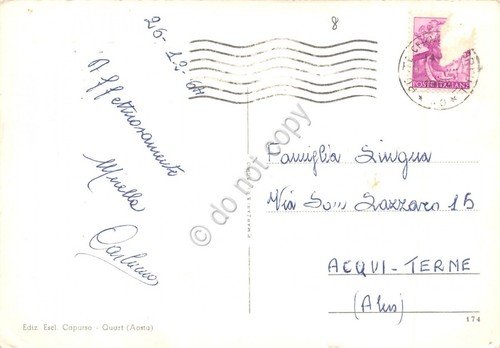 26-12-64
8
Affettuosamente
Mirella
Carluccio
POSTE ITALIANE
Famiglia Lingua
Via San Lazzaro 15
ACQUI-TERME
(Aless)
Ediz. Escl. Caparso - Quart (Aosta)
174
do not copy